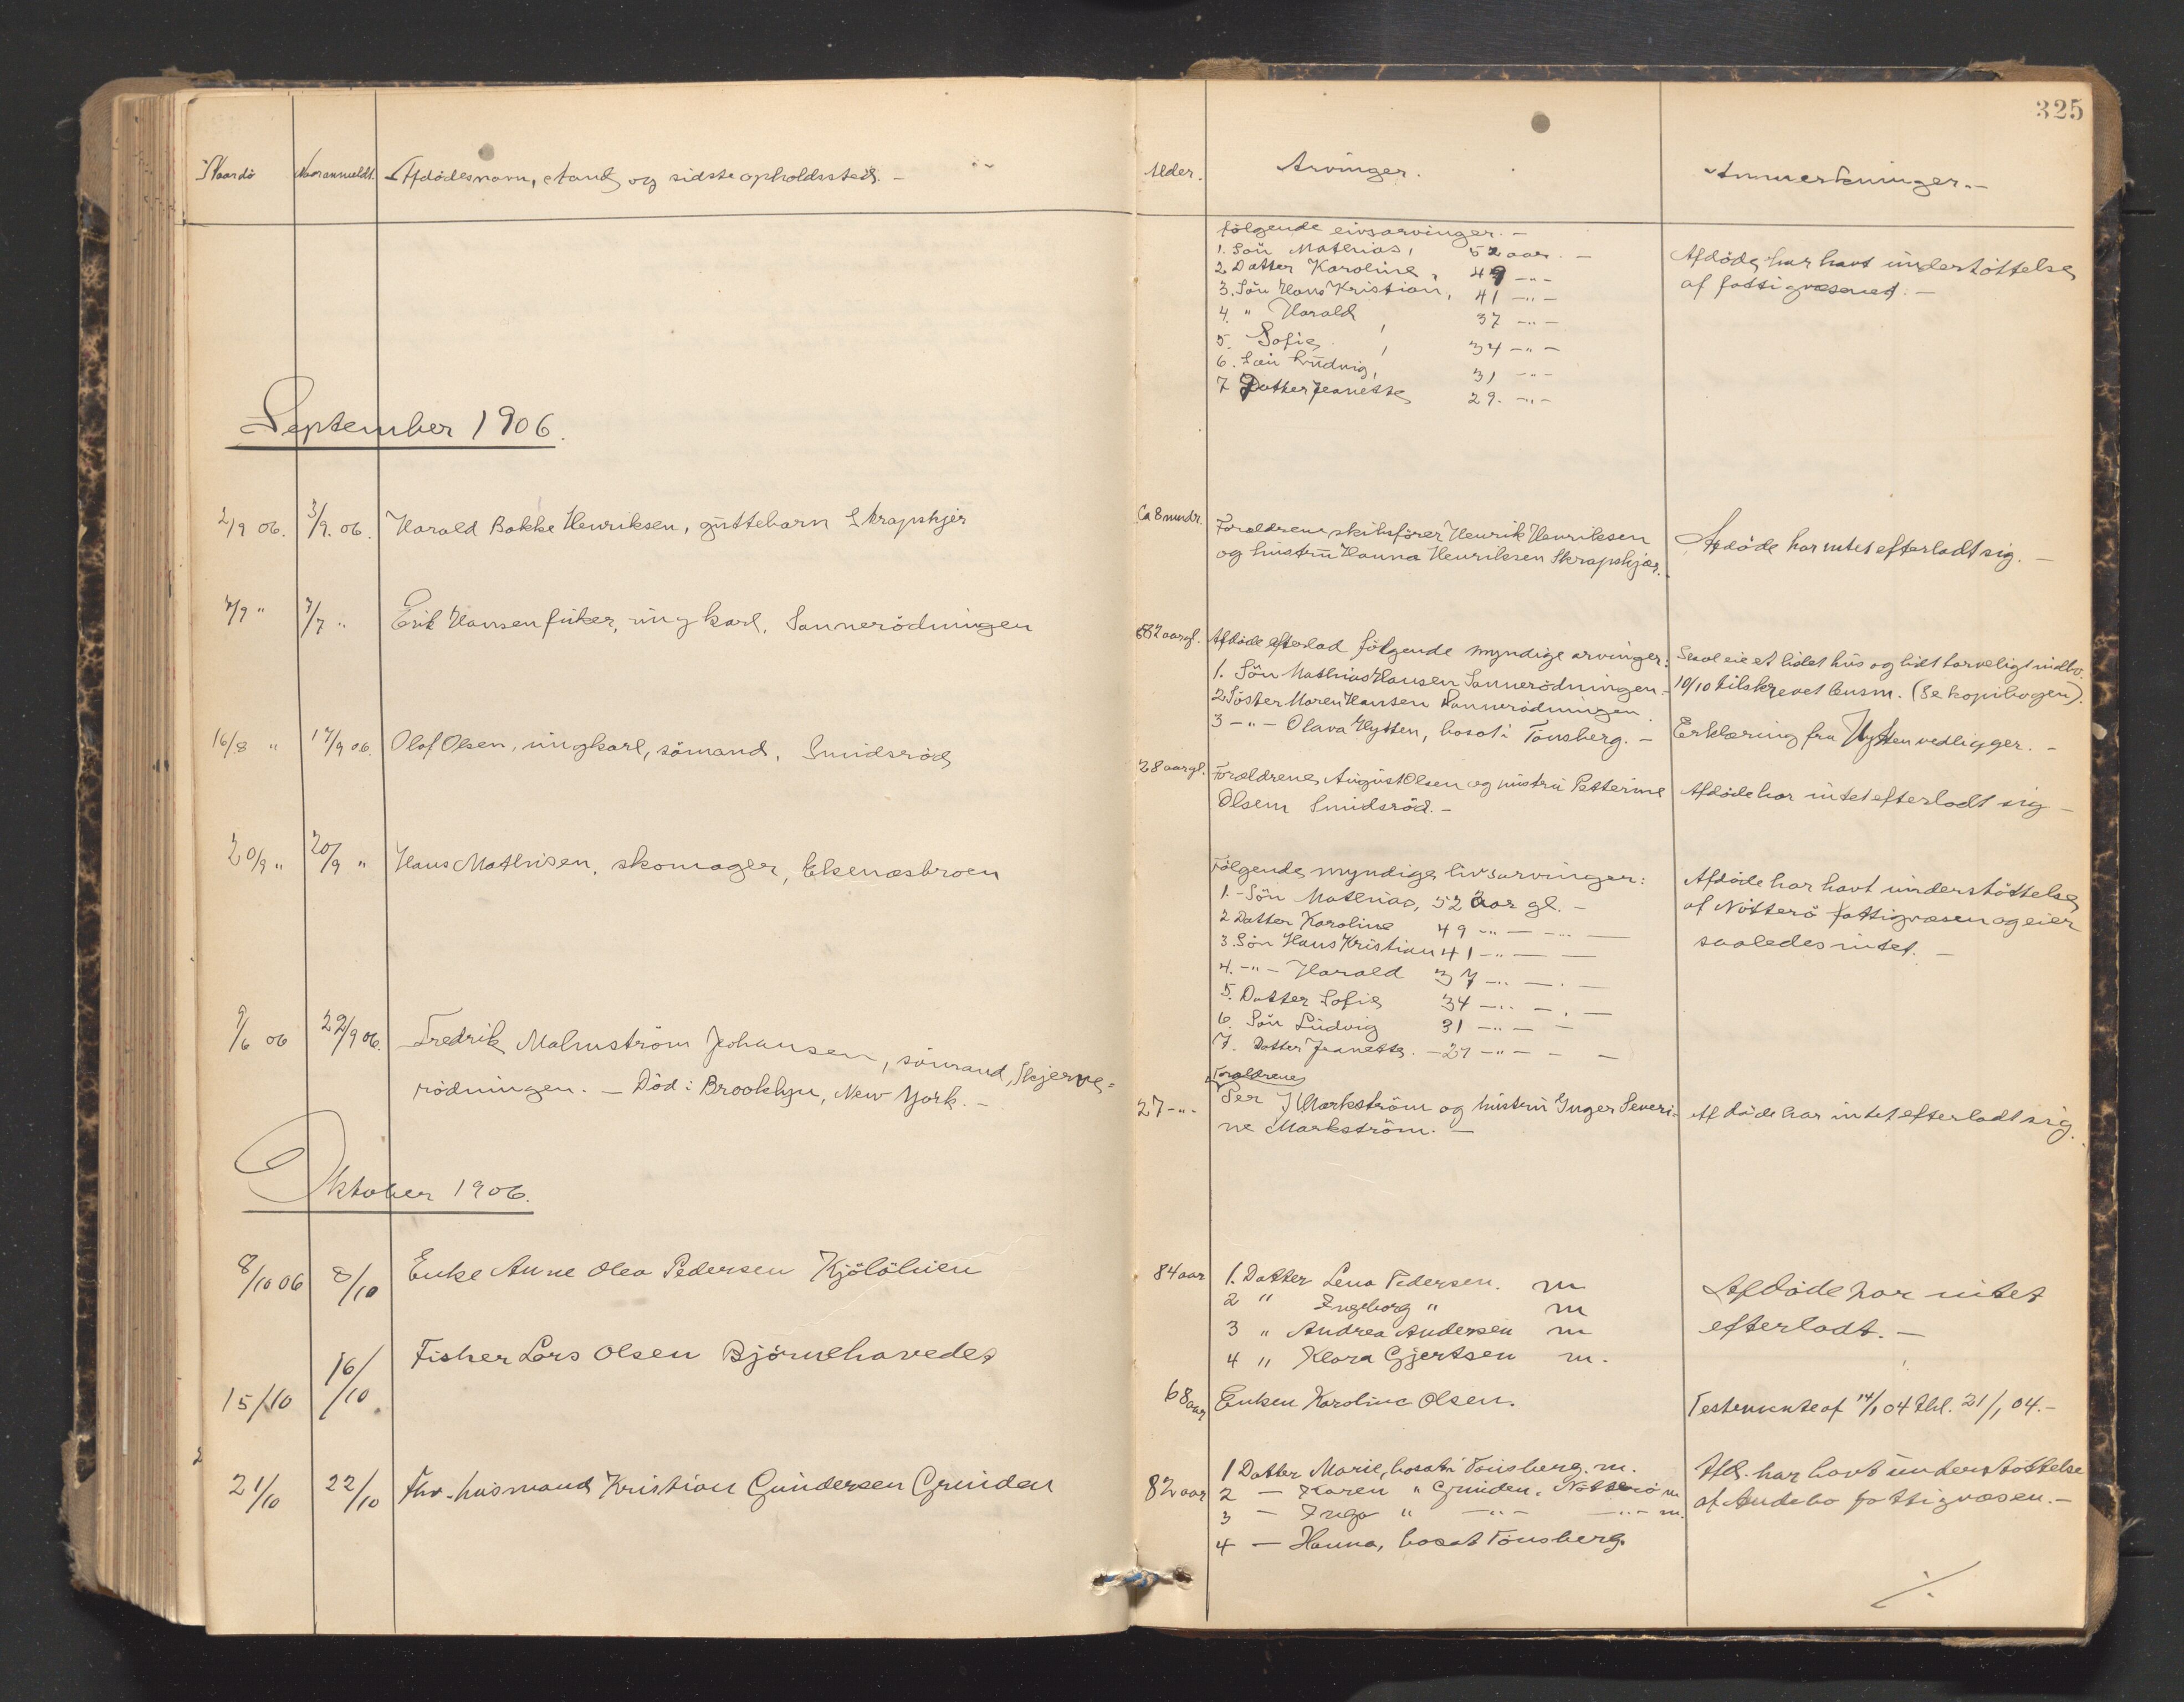 325
Naardö
Naaranmeldt.
Afdödesnavn, stand og sidste opholdssted. -
Alder.
Arvinger.
Anmerkninger. -
følgende livsarvinger. -
1. Sön Mathias, 52 aar. -
2. Datter Karoline, 49 -"-
3. Sön Hans Kristian, 41 -"-
4. " Harald, 37 -"-
5. Sofie, 34 -"-
6. Sön Ludvig, 31 -"-
7 Datter Jeanette 29. -"-
Afdöde har havt understöttelse
af fattigvæsenet. -
September 1906.
2/9 06. 3/9. 06. Harald Bakke Henriksen, guttebarn Skrapskjer
Ca 8 mndr.
Forældrene skibsförer Henrik Henriksen
og hustru Hanna Henriksen Skrapskjær.
Afdöde har intet efterladt sig. -
7/9 " 7/7 " Erik Hansen fisker, ungkarl, Sannerödningen
82 aar gl.
Afdöde efterlod følgende myndige arvinger:
1. Sön Mathias Hansen Sannerödningen -
2. Söster Maren Hansen Sannerödningen.
3 -"- Olava Hytten, bosat i Tönsberg. -
Skal eie et lidet hus og lidt tarveligt indbo.
10/10 tilskrevet lensm. (Se kopibogen).
Erklæring fra Hytten vedligger. -
16/8 " 17/9 06. Olaf Olsen, ungkarl, sömand, Smidsröd
28 aar gl.
Forældrene August Olsen og hustru Petterine
Olsen Smidsröd. -
Afdöde har intet efterladt sig -
20/9 " 20/9 " Hans Mathisen, skomager, Ekenæsbroen
Følgende myndige livsarvinger:
1. - Sön Mathias, 52 aar gl. -
2 Datter Karoline 49 -"-
3. Sön Hans Kristian 41 -"-
4. -"- Harald 37 -"-
5. Datter Sofie 34 -"-
6. Sön Ludvig 31 -"-
7. Datter Jeanette. - 29 -"-
Afdöde har havt understöttelse
af Nötterö fattigvæsen og eier
saaledes intet. -
9/6 06 22/9 06. Fredrik Malmström Johansen, sömand, Skjerve=
rödningen. - Död i Brooklyn, New York. -
27 -"-
Forældrene
Per J Markström og hustru Inger Severi-
ne Markström. -
Afdöde har intet efterladt sig.
Oktober 1906.
8/10 06 8/10 Enke Anne Olea Pedersen Kjölölien
84 aar
1. Datter Lena Pedersen. m
2 " Ingeborg " m
3 " Andrea Andersen m
4 " Klara Gjertsen m.
Afdöde har intet
efterladt. -
15/10 16/10 Fisker Lars Olsen Björnehavedet
68 aar
Enken Karoline Olsen.
Testamente af 14/1 04 thl. 21/1 04. -
21/10 22/10 Fhv. husmand Kristian Gundersen Grinden
82 aar
1 Datter Marie, bosat i Tönsberg. m.
2 - Karen " Grinden. Nötterö m
3 - Inga " -"- -"- m.
4 - Hanna, bosat Tönsberg.
Afd. har havt understöttelse
af Andebo fattigvæsen. -
./.